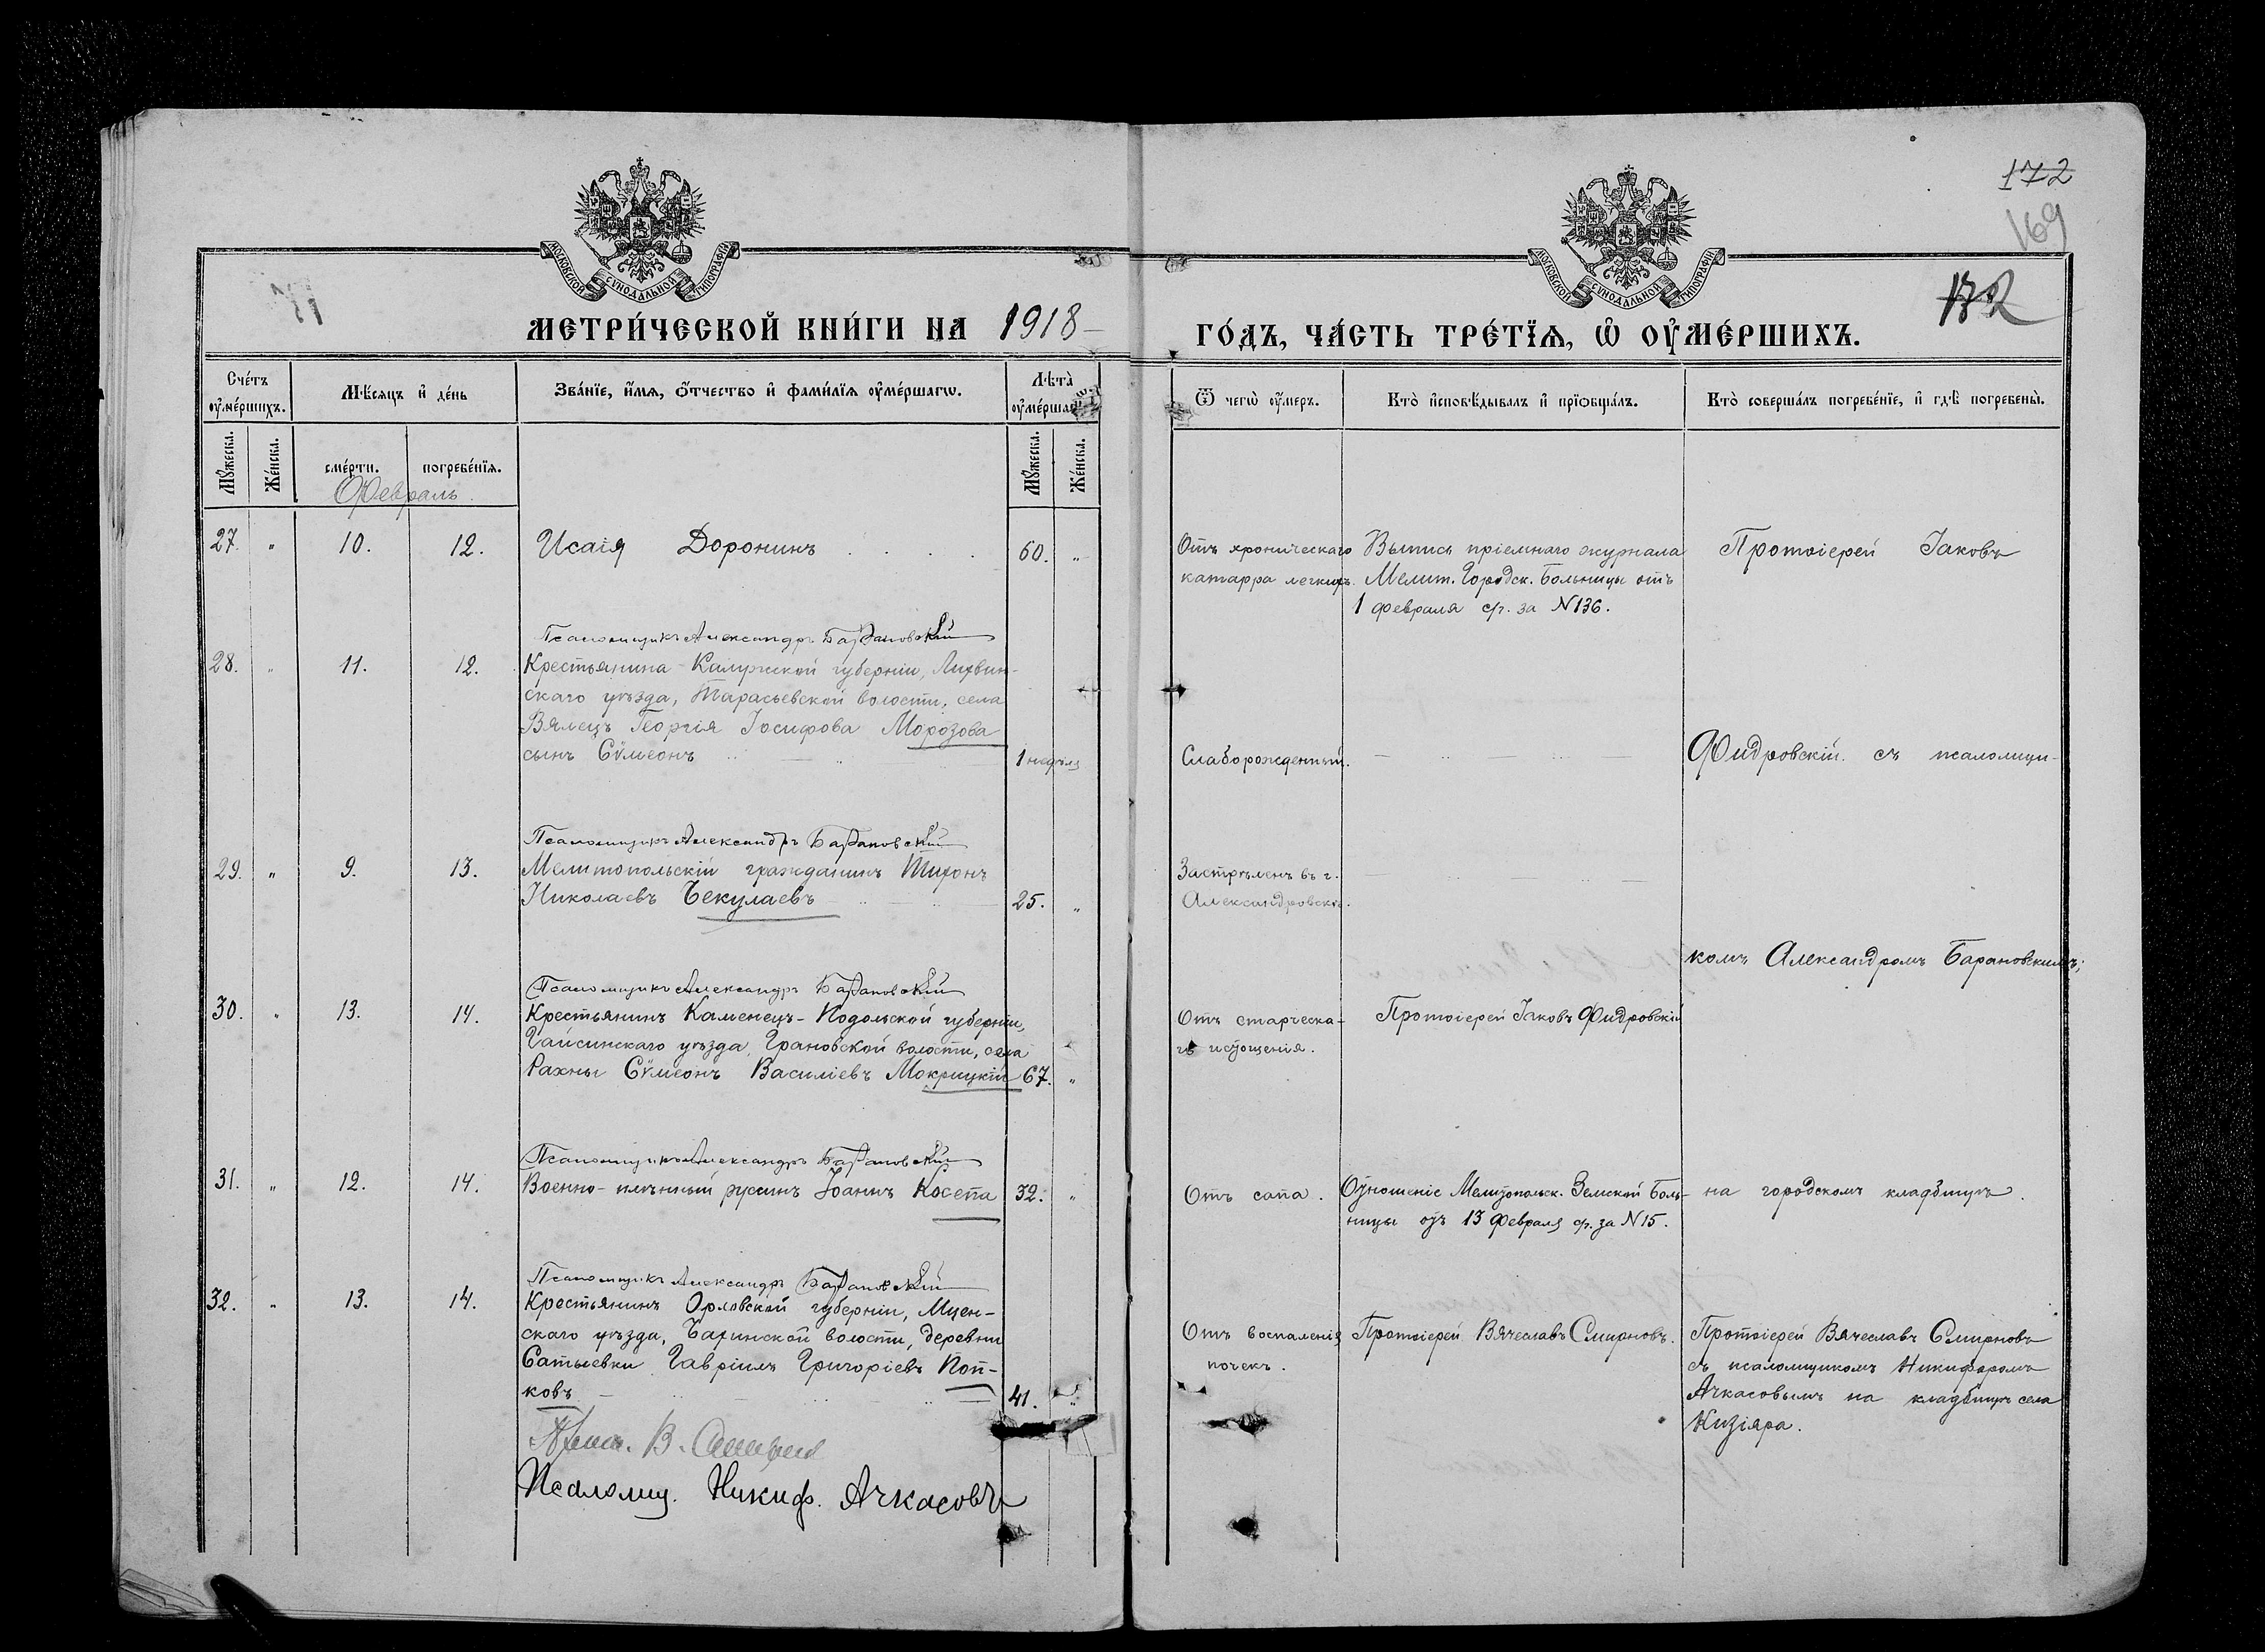 172
169
172
МОСКОВСКОЙ СѴНОДАЛЬНОЙ ТИПОГРАФІИ
МОСКОВСКОЙ СѴНОДАЛЬНОЙ ТИПОГРАФІИ
МЕТРИ́ЧЕСКОЙ КНИ́ГИ НА 1918
ГО́ДЪ, ЧА́СТЬ ТРЕ́ТЇѦ, Ѡ҆ ОУ҆МЕ́РШИХЪ.
Сче́тъ оу҆ме́ршихъ.
Мѣ́сяцъ и҆ де́нь
Зва́нїе, и҆́мѧ, ѻ҆́тчество и҆ фами́лїѧ оу҆ме́ршагѡ.
Лѣта̀ оу҆ме́ршагѡ.
Ѿ чегѡ̀ оу҆́меръ.
Кто̀ и҆сповѣ́дывалъ и҆ прїѡбща́лъ.
Кто̀ соверша́лъ погребе́нїе, и҆ гдѣ̀ погребены̀.
Мꙋ́жеска.
Же́нска.
сме́рти.
погребе́нїѧ.
Мꙋ́жеска.
Же́нска.
Февраль.
27. " 10. 12. Исаія Доронинъ . . . . 60. "
Отъ хроническаго
катарра легкихъ.
Выпись пріемнаго журнала
Мелит. Городск. Больницы отъ
1 февраля с/г. за N 136.
Протоіерей Іаковъ
Псаломщикъ Александръ Барановскій
28. " 11. 12. Крестьянина Калужской губерніи, Лихвин-
скаго уѣзда, Тарасьевской волости, села
Вялецъ Георгія Іосифова Морозова
сынъ Сѵмеонъ 1 недѣля
Слаборожденный.
Фидровскій съ псаломщи-
Псаломщикъ Александръ Барановскій
29. " 9. 13. Мелитопольскій гражданинъ Тихонъ
Николаевъ Бекулаевъ 25. "
Застрѣленъ въ г.
Александровскѣ.
комъ Александромъ Барановскимъ;
Псаломщикъ Александръ Барановскій
30. " 13. 14. Крестьянинъ Каменецъ-Подольской губерніи,
Гайсинскаго уѣзда, Грановской волости, села
Рахны Сѵмеонъ Василіевъ Мокрицкій 67. "
Отъ старческа-
го истощенія.
Протоіерей Іаковъ Фидровскій
Псаломщикъ Александръ Барановскій
31. " 12. 14. Военно-плѣнный русинъ Іоаннъ Косета 32. "
Отъ сапа.
Отношеніе Мелитопольск. Земской Боль-
ницы отъ 13 февраля с/г. за N 15.
на городскомъ кладбищѣ.
Псаломщикъ Александръ Барановскій
32. " 13. 14. Крестьянинъ Орловской губерніи, Мцен-
скаго уѣзда, Бахинской волости, деревни
Сатыевки Гавріилъ Григоріевъ Поп-
ковъ 41. "
Отъ воспаленія
почекъ.
Протоіерей Вячеславъ Смирновъ.
Протоіерей Вячеславъ Смирновъ
съ псаломщикомъ Никифоромъ
Ачкасовымъ на кладбищѣ села
Кизіяра.
Прот. В. Смирнов
Псаломщ. Никиф. Ачкасовъ